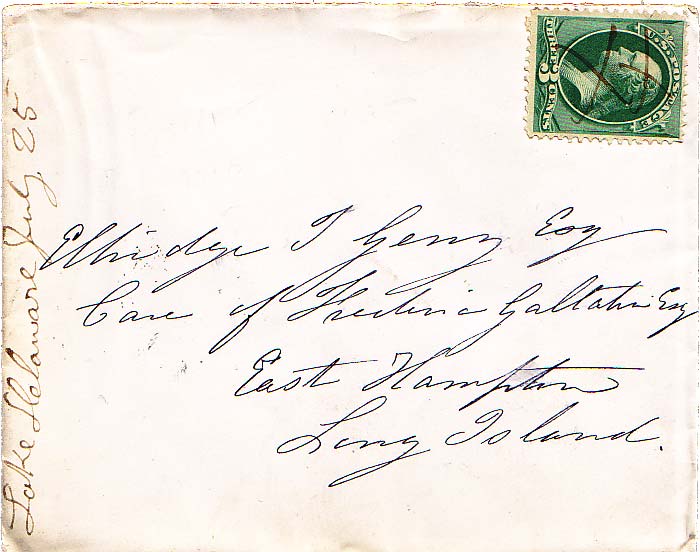 Elbridge T Gerry Esq
Care of Frederic Gallatin Esq
East Hampton
Long Island.
Lake Delaware July 25
U.S. POSTAGE
THREE 3 CENTS